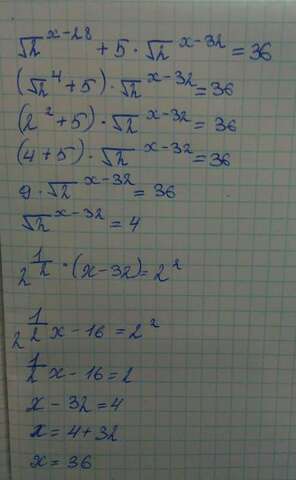 √2^(x-28) + 5 · √2^(x-32) = 36
(√2^4 + 5) · √2^(x-32) = 36
(2^2 + 5) · √2^(x-32) = 36
(4 + 5) · √2^(x-32) = 36
9 · √2^(x-32) = 36
√2^(x-32) = 4
2^(1/2 · (x-32)) = 2^2
2^(1/2 x - 16) = 2^2
1/2 x - 16 = 2
x - 32 = 4
x = 4 + 32
x = 36